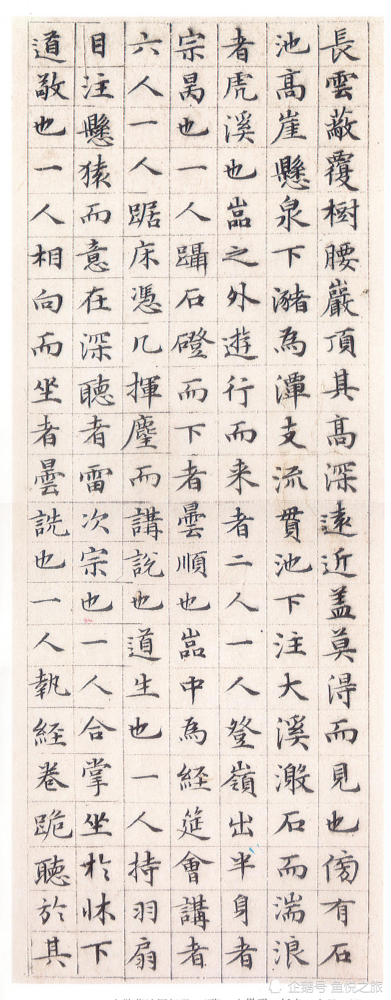 長雲蔽覆樹腰巖頂其髙深遠近盖莫淂而見也傍有石
池髙崖懸泉下瀦為潭支流貫池下注大溪激石而湍浪
者虎溪也嵓之外遊行而来者二人一人登嶺出半身者
宗昺也一人躡石磴而下者曇順也嵓中為經筵會講者
六人一人踞床憑几揮麈而講說也道生也一人持羽扇
目注懸猿而意在深聽者雷次宗也一人合掌坐於牀下
道敬也一人相向而坐者曇詵也一人執經卷跪聽於其
企鹅号 童悦之旅